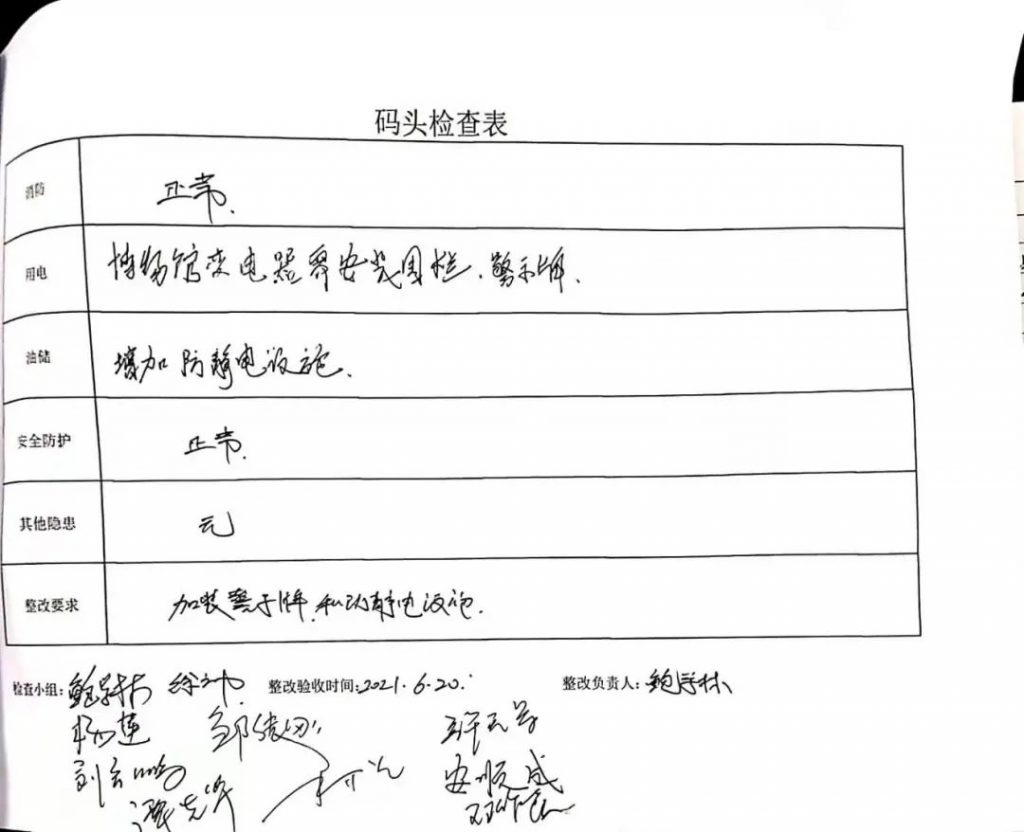 码头检查表
消防 正常.
用电 博物馆变电器需安装围栏、警示牌.
油储 增加防静电设施.
安全防护 正常.
其他隐患 无
整改要求 加装警示牌和防静电设施.
检查小组: 鲍学林 整改验收时间:2021.6.20. 整改负责人: 鲍学林
杨莲
安顺成